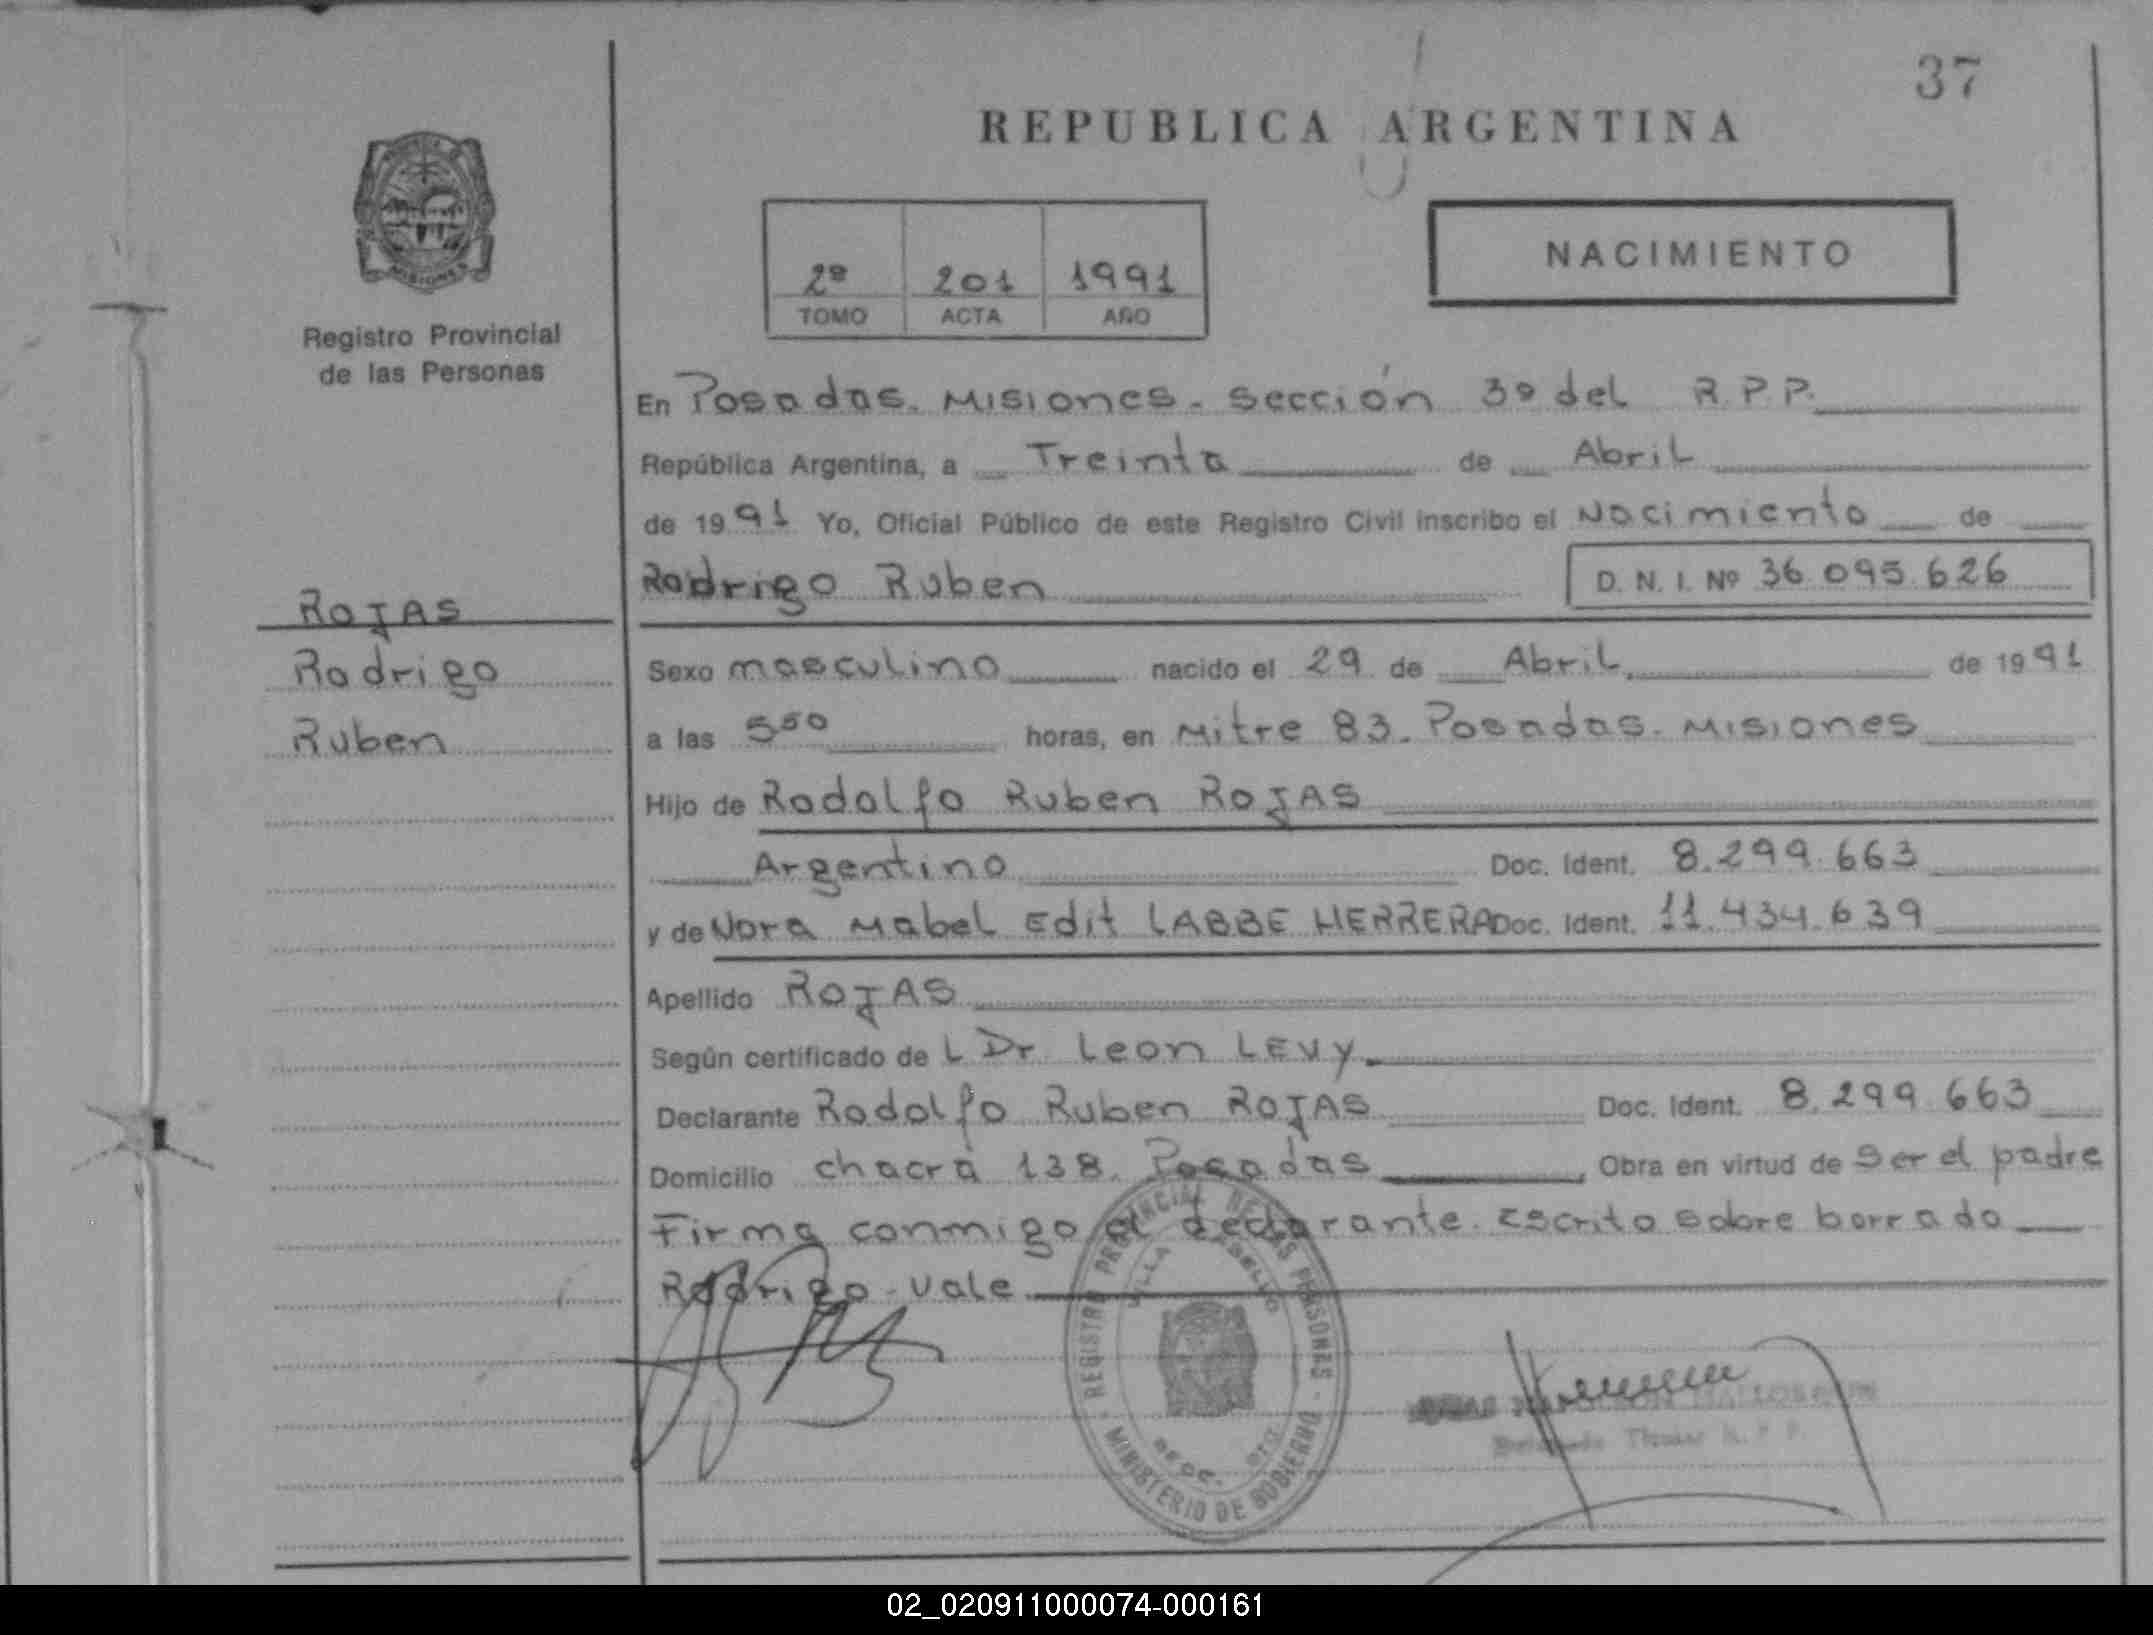 37
REPUBLICA ARGENTINA
MISIONES
Registro Provincial
de las Personas
2º 201 1991
TOMO ACTA AÑO
NACIMIENTO
En Posadas. Misiones. Sección 3º del R.P.P.
República Argentina, a Treinta de Abril
de 1991 Yo, Oficial Público de este Registro Civil inscribo el Nacimiento de
Rodrigo Ruben D. N. I. Nº 36.095.626
ROJAS
Rodrigo
Ruben
Sexo masculino nacido el 29 de Abril de 1991
a las 5⁵⁰ horas, en Mitre 83. Posadas. Misiones
Hijo de Rodolfo Ruben ROJAS
Argentino Doc. Ident. 8.299.663
y de Nora Mabel Edit LABBE HERRERA Doc. Ident. 11.434.639
Apellido ROJAS
Según certificado de L Dr. Leon LEVY.
Declarante Rodolfo Ruben ROJAS Doc. Ident. 8.299.663
Domicilio chacra 138. Posadas, Obra en virtud de ser el padre
Firma conmigo el declarante. Escrito sobre borrado
Rodrigo - Vale
REGISTRO PROVINCIAL DE LAS PERSONAS - MINISTERIO DE GOBIERNO
VILLA
Titular R. P. P.
02_020911000074-000161